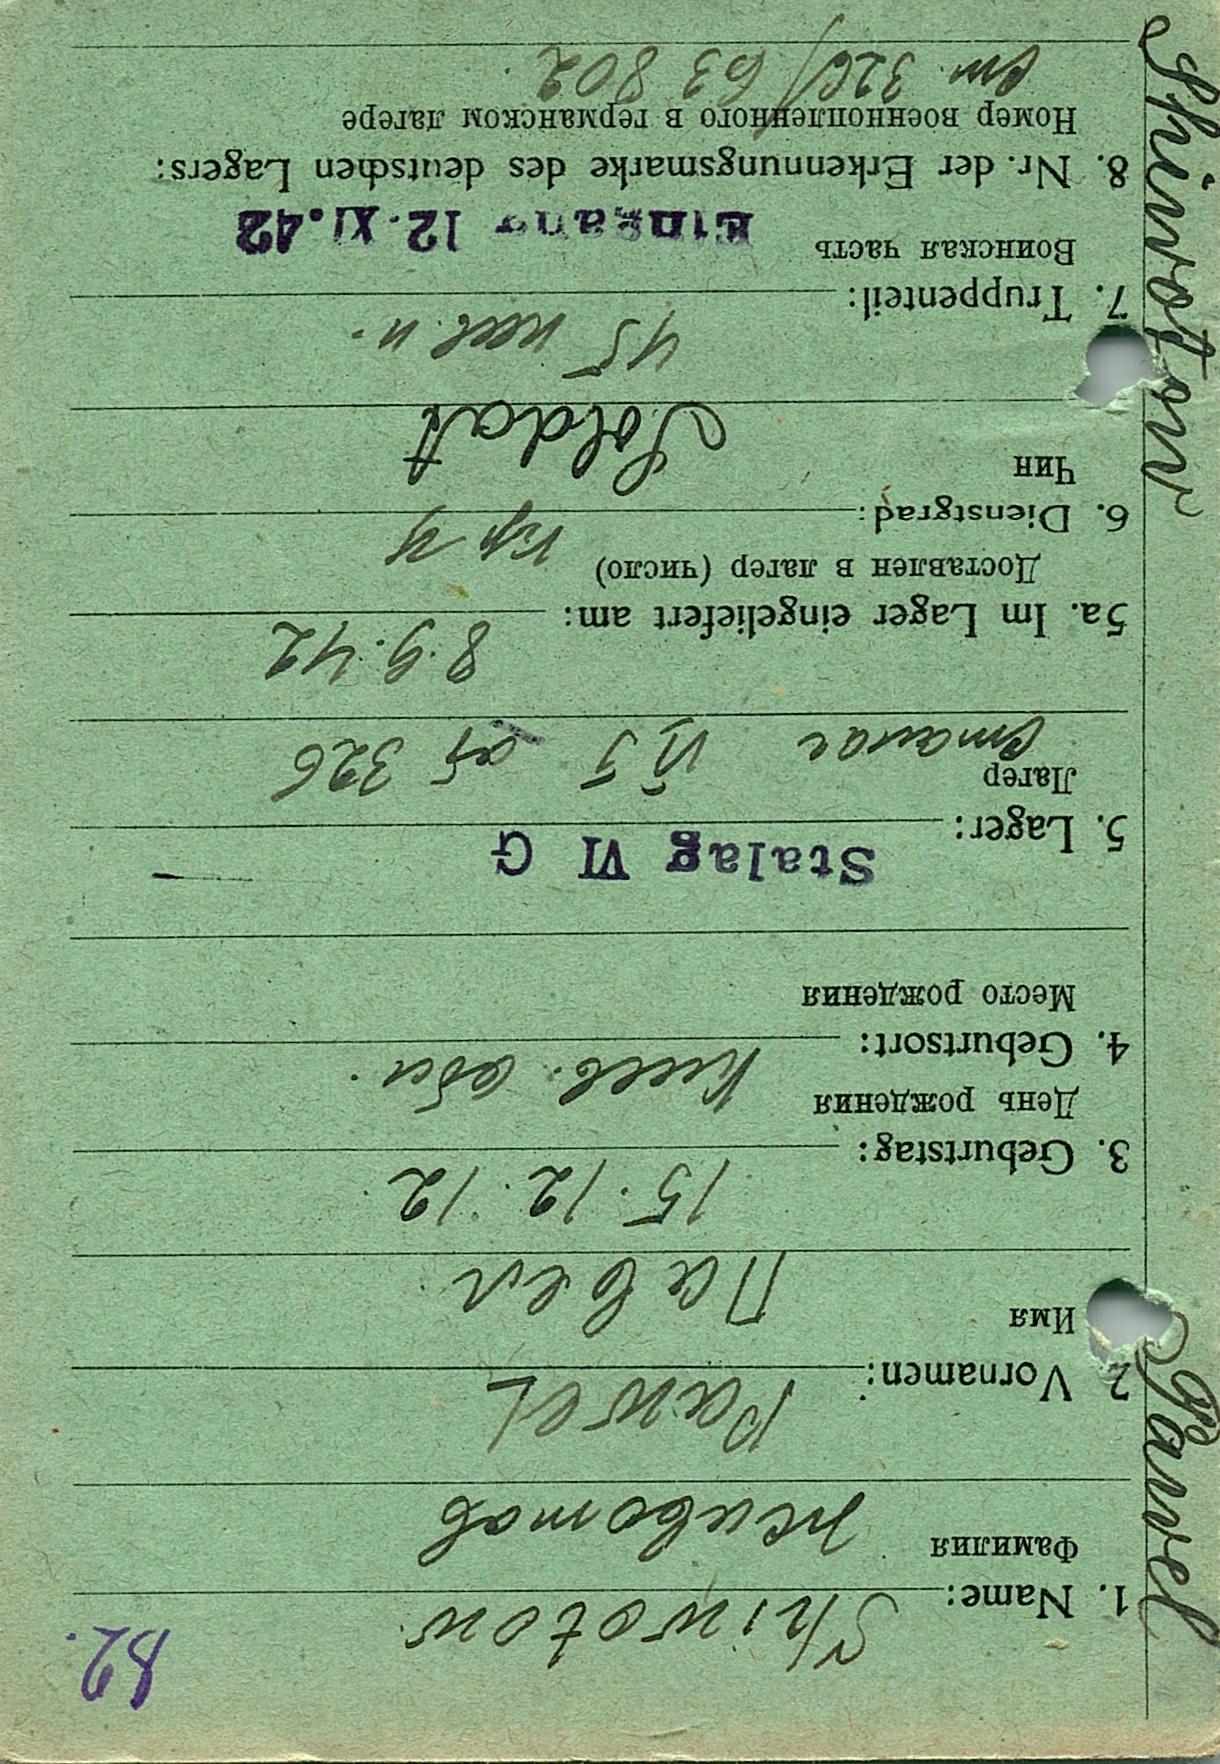 82.
Shiwotow
1. Name:
Фамилия
Животов
Pawel
2. Vornamen:
Имя
Павел
15.12.12.
3. Geburtstag:
День рождения
Киев. обл.
4. Geburtsort:
Место рождения
Stalag VI G
5. Lager:
Лагер
сталаг VI J 326
8.9.42
5a. Im Lager eingeliefert am:
Доставлен в лагер (число)
6. Dienstgrad:
Чин
Soldat
45
7. Truppenteil:
Воинская часть
Eingang 12. XI. 42
8. Nr. der Erkennungsmarke des deutschen Lagers:
Номер военнопленного в германском лагере
326/63 802
Shiwotow Pawel